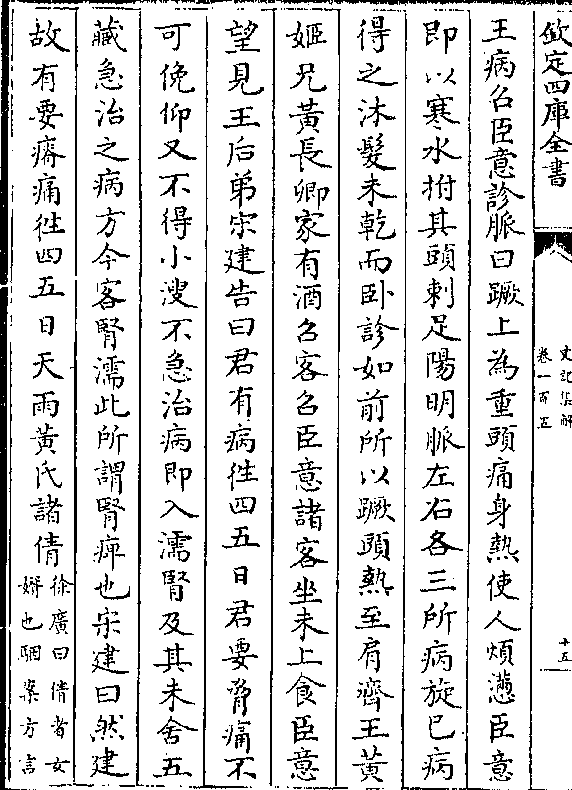 欽定四庫全書
史記集解
卷一百五
十五
王病召臣意診脈曰蹶上為重頭痛身熱使人煩懣臣意
即以寒水拊其頭刺足陽明脈左右各三所病旋已病
得之沐髮未乾而卧診如前所以蹶頭熱至肩濟王黃
姬兄黃長卿家有酒召客召臣意諸客坐未上食臣意
望見王后弟宋建告曰君有病徃四五日君要脅痛不
可俛仰又不得小溲不急治病即入濡腎及其未舍五
藏急治之病方今客腎濡此所謂腎痺也宋建曰然建
故有要瘠痛徃四五日天雨黃氏諸倩
徐廣曰倩者女
婿也駰案方言